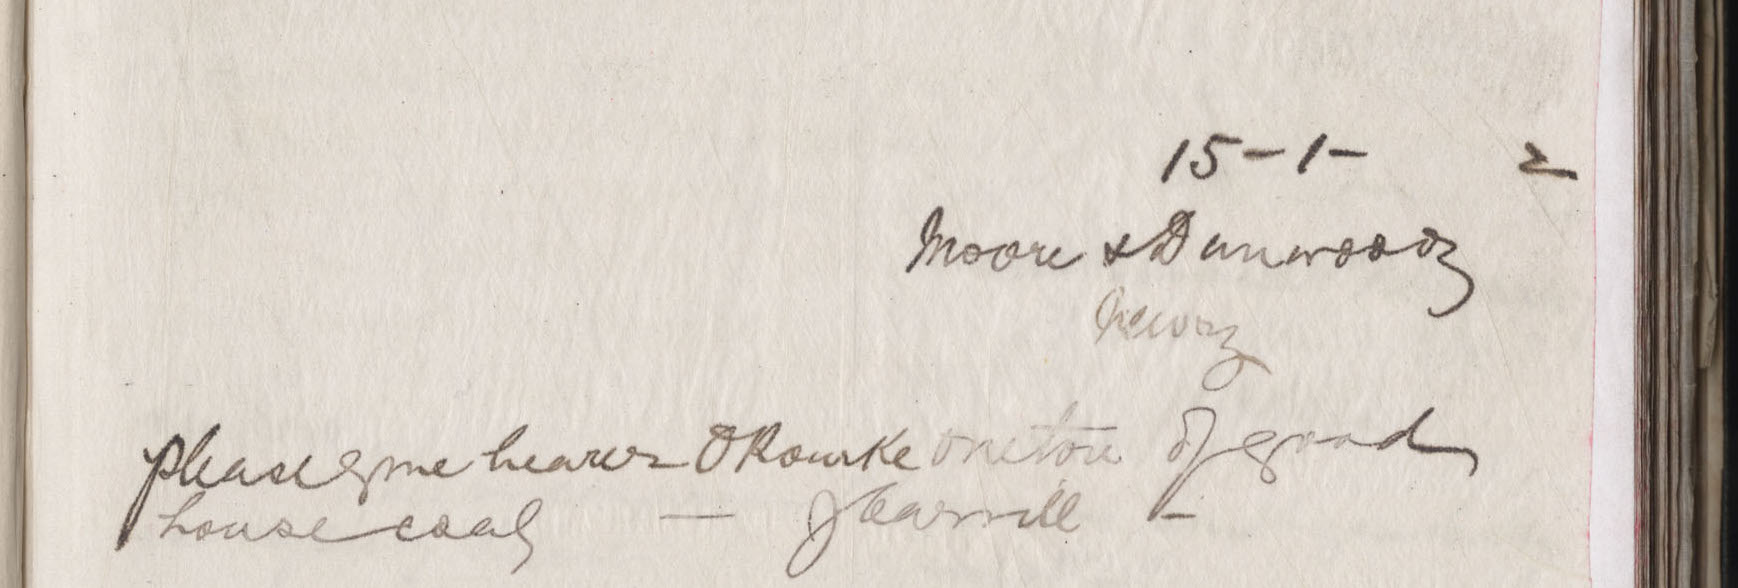 15-1- 2
Moore & Dunwoody
Newry
please give bearer O Rourke one ton of good
house coal —